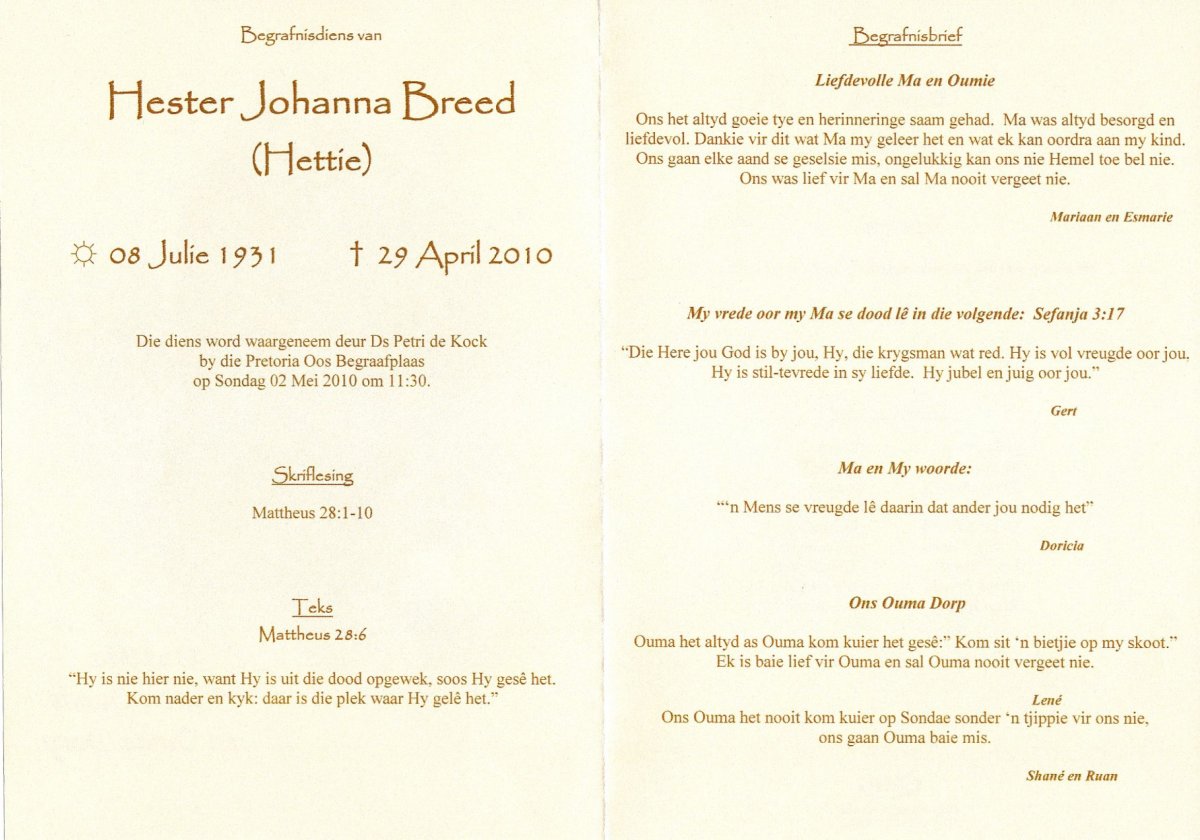 Begrafnisdiens van
Hester Johanna Breed
(Hettie)
☼ 08 Julie 1931 † 29 April 2010
Die diens word waargeneem deur Ds Petri de Kock
by die Pretoria Oos Begraafplaas
op Sondag 02 Mei 2010 om 11:30.
Skriflesing
Mattheus 28:1-10
Teks
Mattheus 28:6
“Hy is nie hier nie, want Hy is uit die dood opgewek, soos Hy gesê het.
Kom nader en kyk: daar is die plek waar Hy gelê het.”
Begrafnisbrief
Liefdevolle Ma en Oumie
Ons het altyd goeie tye en herinneringe saam gehad. Ma was altyd besorgd en
liefdevol. Dankie vir dit wat Ma my geleer het en wat ek kan oordra aan my kind.
Ons gaan elke aand se geselsie mis, ongelukkig kan ons nie Hemel toe bel nie.
Ons was lief vir Ma en sal Ma nooit vergeet nie.
Mariaan en Esmarie
My vrede oor my Ma se dood lê in die volgende: Sefanja 3:17
“Die Here jou God is by jou, Hy, die krygsman wat red. Hy is vol vreugde oor jou.
Hy is stil-tevrede in sy liefde. Hy jubel en juig oor jou.”
Gert
Ma en My woorde:
“‘n Mens se vreugde lê daarin dat ander jou nodig het”
Doricia
Ons Ouma Dorp
Ouma het altyd as Ouma kom kuier het gesê:” Kom sit ‘n bietjie op my skoot.”
Ek is baie lief vir Ouma en sal Ouma nooit vergeet nie.
Lené
Ons Ouma het nooit kom kuier op Sondae sonder ‘n tjippie vir ons nie,
ons gaan Ouma baie mis.
Shané en Ruan